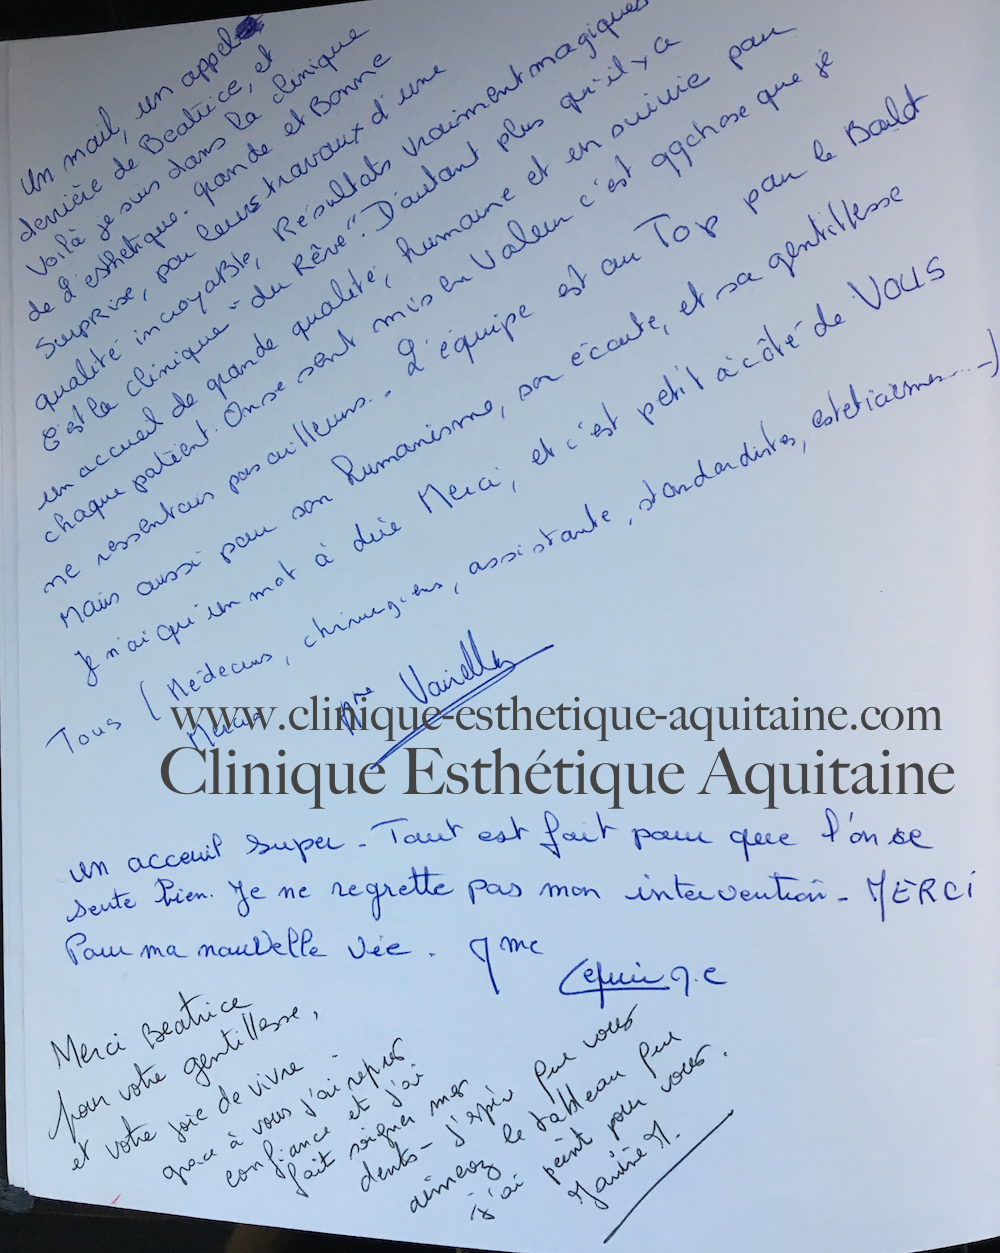 Un mail, un appel
derrière de Béatrice, et
Voilà je suis dans la clinique
de l'esthétique. grande et Bonne
Surprise, pour leurs travaux d'une
qualité incroyable, Résultats vraiment magiques
C'est la clinique "du Rêve". D'autant plus qu'il y a
un accueil de grande qualité, humaine et en suivie pour
chaque patient. On se sent mis en Valeur c'est qqchose que je
ne ressentais pas ailleurs... L'équipe est au Top par le
Mais aussi pour son humanisme, son écoute, et sa gentillesse
Je n'ai qu'un mot à dire Merci, et c'est petit à côté de Vous
Tous (Médecins, chirurgiens, assistante, standardistes, esteticiennes...)
Merci Mme
www.clinique-esthetique-aquitaine.com
Clinique Esthétique Aquitaine
un acceuil super - Tout est fait pour que l'on se
sente bien. Je ne regrette pas mon intervention - MERCI
Pour ma nouvelle vie. Mme
Merci Béatrice
pour votre gentillesse,
et votre joie de vivre
grace à vous j'ai repris
confiance et j'ai
fait soigner mes
dents - J'espère que vous
aimerez le tableau que
j'ai peint pour vous.